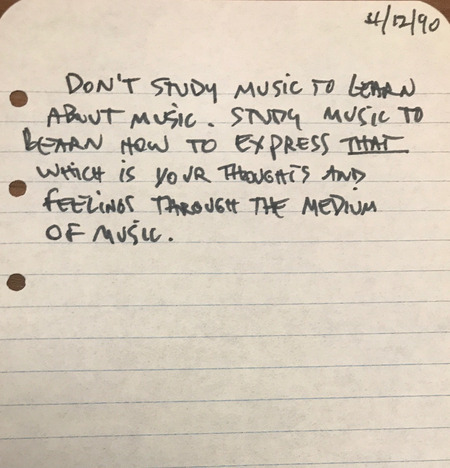 4/12/90
DON'T STUDY MUSIC TO LEARN
ABOUT MUSIC. STUDY MUSIC TO
LEARN HOW TO EXPRESS THAT
WHICH IS YOUR THOUGHTS AND
FEELINGS THROUGH THE MEDIUM
OF MUSIC.